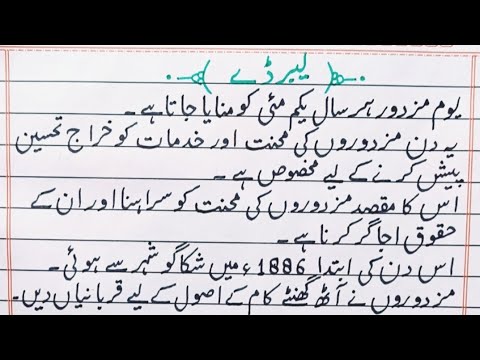 لیبر ڈے
یوم مزدور ہر سال یکم مئی کو منایا جاتا ہے۔
یہ دن مزدوروں کی محنت اور خدمات کو خراج تحسین
پیش کرنے کے لیے مخصوص ہے۔
اس کا مقصد مزدوروں کی محنت کو سراہنا اور ان کے
حقوق اجاگر کرنا ہے۔
اس دن کی ابتدا 1886ء میں شکاگو شہر سے ہوئی۔
مزدوروں نے آٹھ گھنٹے کام کے اصول کے لیے قربانیاں دیں۔